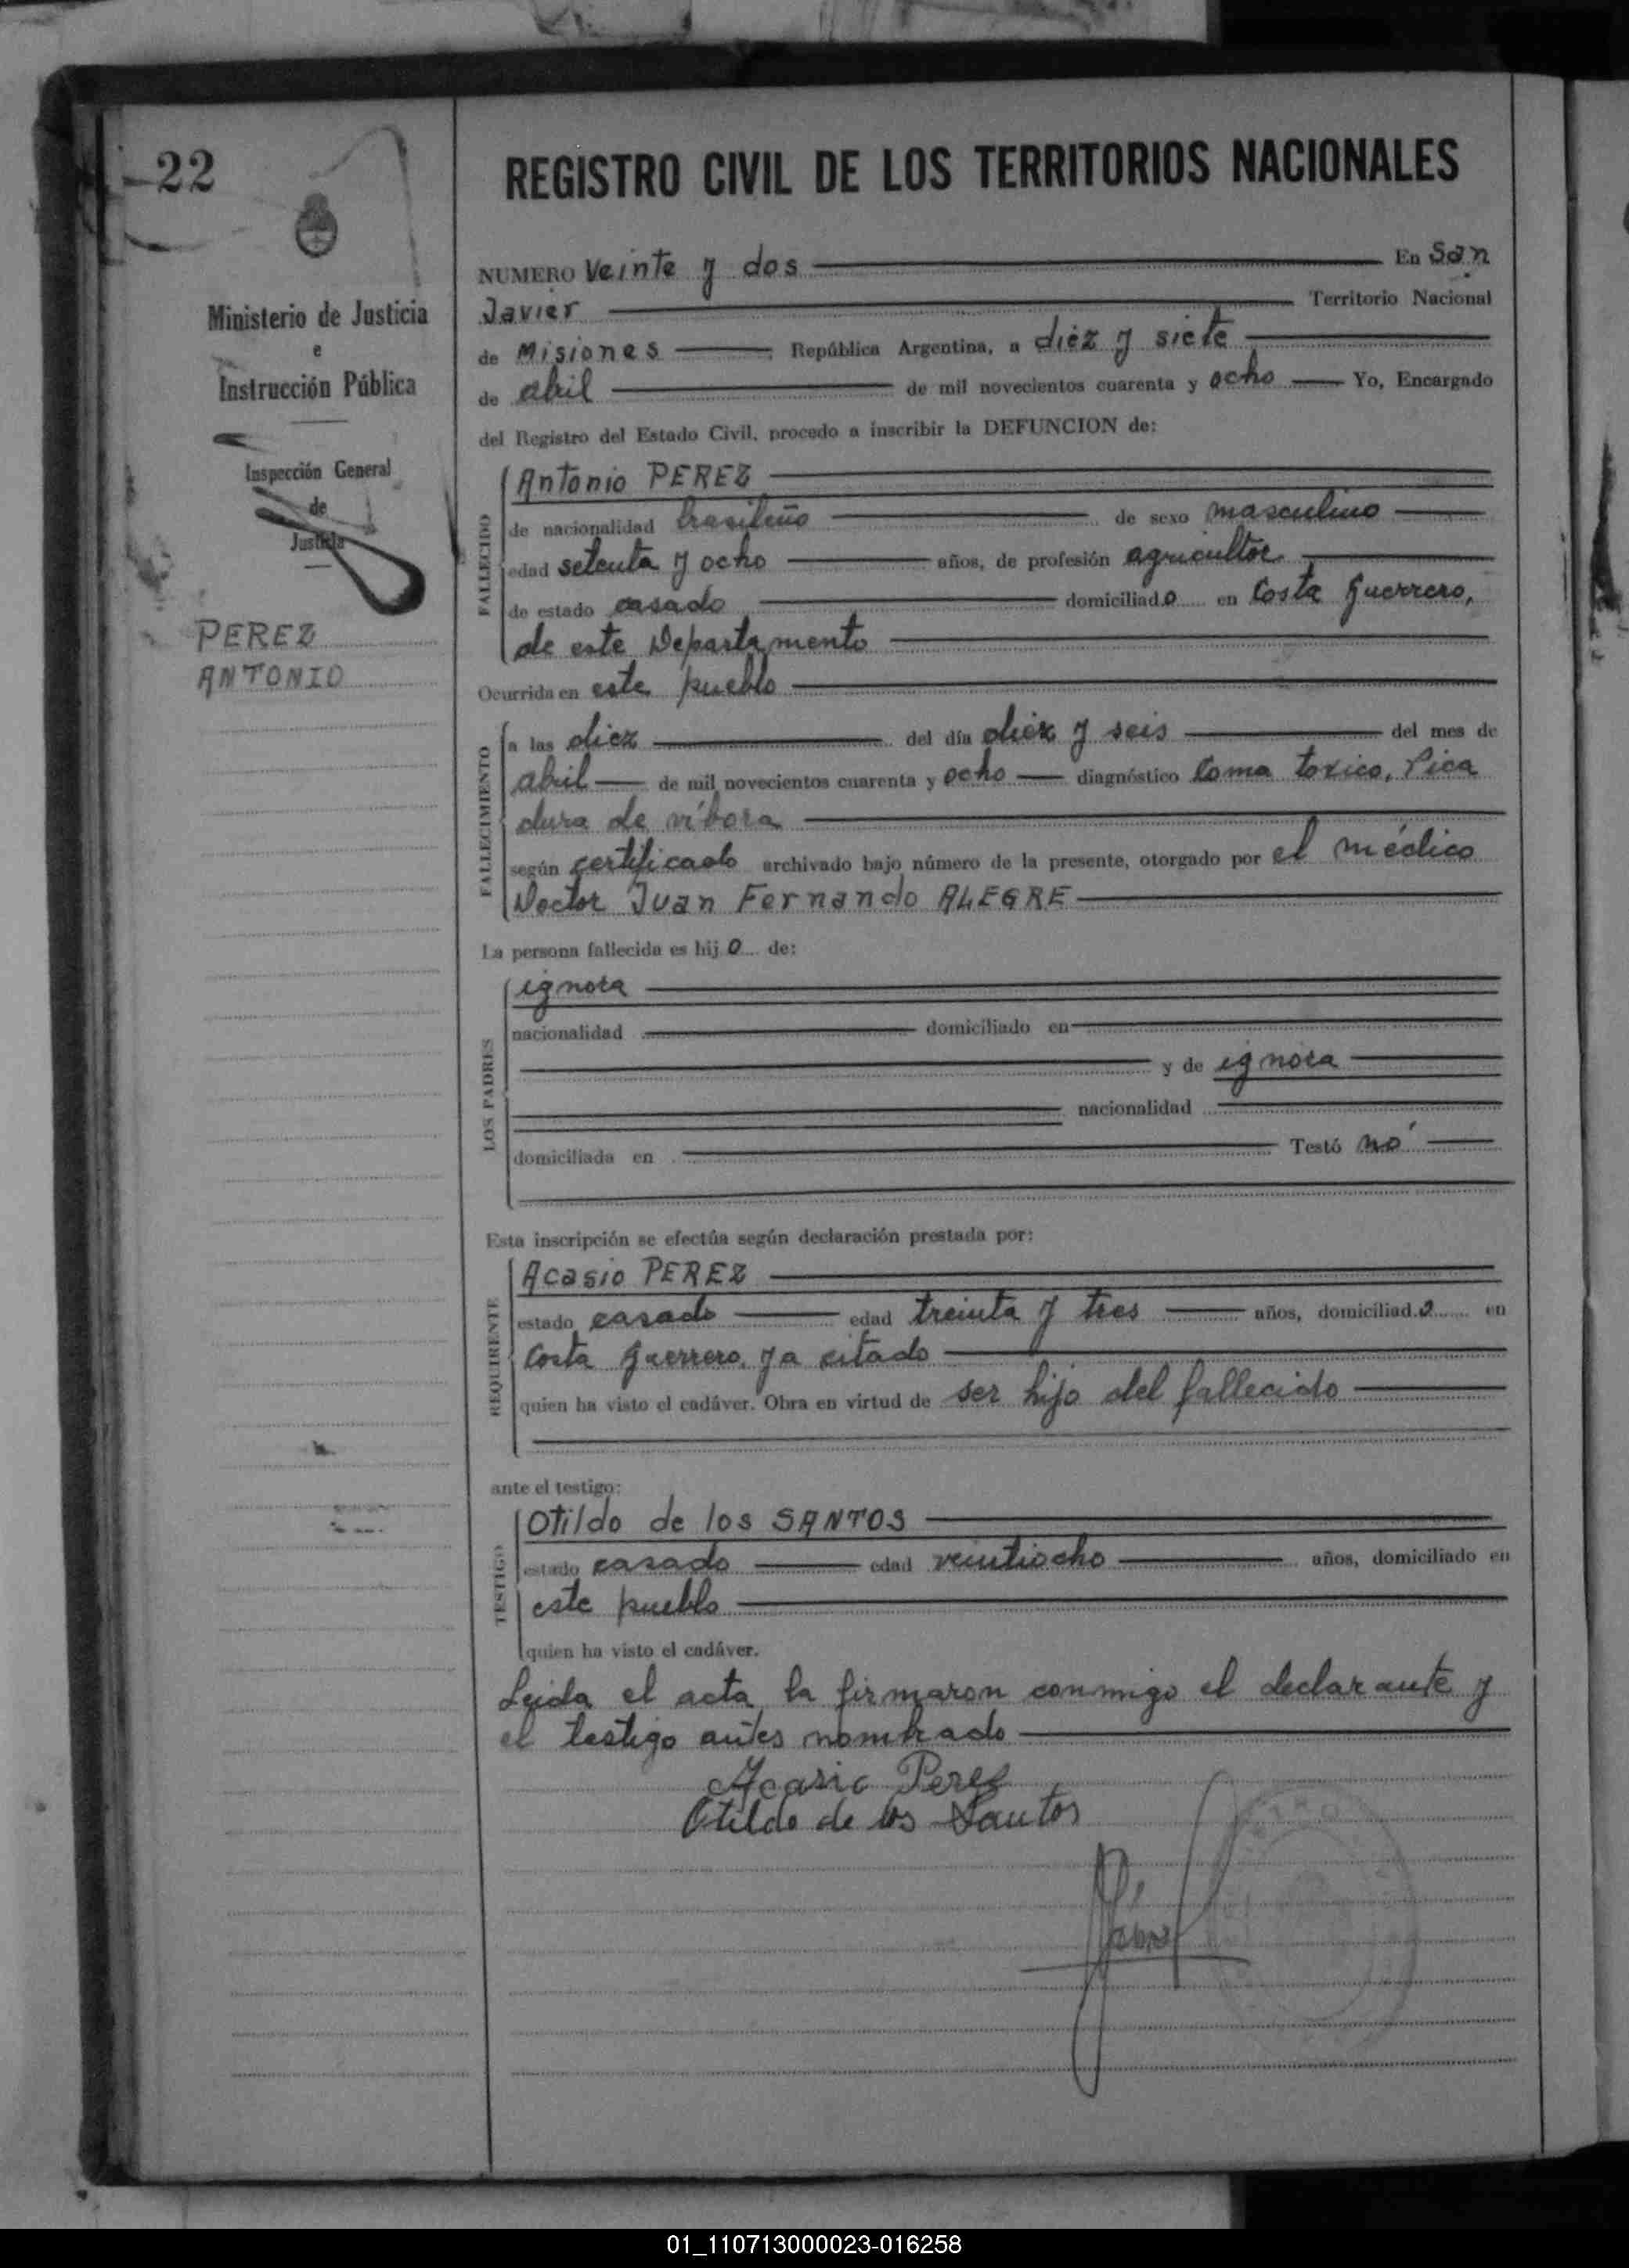 22
Ministerio de Justicia
e
Instrucción Pública
Inspección General
de
Justicia
PEREZ
ANTONIO
REGISTRO CIVIL DE LOS TERRITORIOS NACIONALES
NUMERO Veinte y dos En San
Javier Territorio Nacional
de Misiones República Argentina, a diez y siete
de abril de mil novecientos cuarenta y ocho Yo, Encargado
del Registro del Estado Civil, procedo a inscribir la DEFUNCION de:
FALLECIDO
Antonio PEREZ
de nacionalidad brasileño de sexo masculino
edad setenta y ocho años, de profesión agricultor
de estado casado domiciliado en Costa Guerrero,
de este Departamento
Ocurrida en este pueblo
FALLECIMIENTO
a las diez del día diez y seis del mes de
abril de mil novecientos cuarenta y ocho diagnóstico Coma toxico, Pica
dura de víbora
según certificado archivado bajo número de la presente, otorgado por el médico
Doctor Juan Fernando ALEGRE
La persona fallecida es hij o de:
LOS PADRES
ignora
nacionalidad domiciliado en
y de ignora
nacionalidad
domiciliada en Testó no
Esta inscripción se efectúa según declaración prestada por:
REQUIRENTE
Acasio PEREZ
estado casado edad treinta y tres años, domiciliad o en
Costa Guerrero, ya citado
quien ha visto el cadáver. Obra en virtud de ser hijo del fallecido
ante el testigo:
TESTIGO
Otildo de los SANTOS
estado casado edad veintiocho años, domiciliado en
este pueblo
quien ha visto el cadáver.
Leida el acta la firmaron conmigo el declarante y
el testigo antes nombrado
Acasio Perez
Otildo de los Santos
01_110713000023-016258